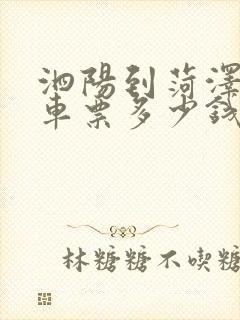 泗陽到菏澤
車票多少錢
林糖糖不喫糖